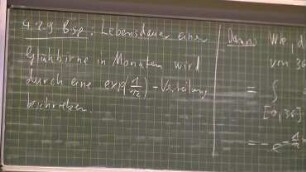 4.2.9 Bsp.: Lebensdauer einer
Glühbirne in Monaten wird
durch eine exp(1/12)-Verteilung
beschrieben
Wie
von 36
= ∫
[0,36]
= -e